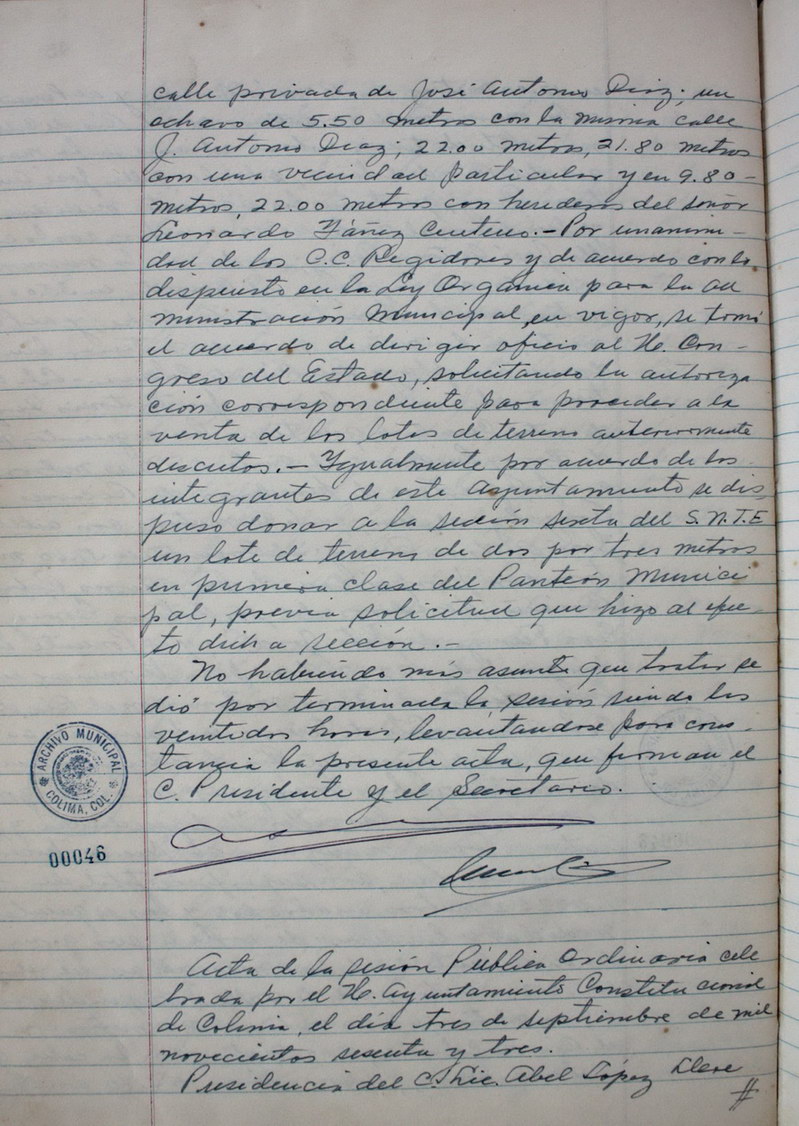 calle privada de José Antonio Diaz; un
ochavo de 5.50 metros con la misma calle
J. Antonio Diaz; 22.00 metros, 21.80 metros
con una vecindad particular y en 9.80-
metros, 22.00 metros con herederos del señor
Leonardo Yáñez Centeno.- Por unanimi-
dad de los C.C. Regidores y de acuerdo con lo
dispuesto en la Ley Orgánica para la ad
ministración Municipal, en vigor, se tomó
el acuerdo de dirigir oficio al H. Con-
greso del Estado, solicitando la autoriza
ción correspondiente para proceder a la
venta de los lotes de terreno anteriormente
descritos.- Ygualmente por acuerdo de los
integrantes de este Ayuntamiento se dis
puso donar a la sección sexta del S.N.T.E
un lote de terreno de dos por tres metros
en primera clase del Panteón Munici
pal, previa solicitud que hizo al efec-
to dicha sección.-
No habiendo más asunto que tratar se
dió por terminada la sesión siendo las
veintidos horas, levantandose para cons-
tancia la presente acta, que firman el
C. Presidente y el Secretario.
ARCHIVO MUNICIPAL
COLIMA, COL.
00046
Acta de la sesión Pública Ordinaria cele
brada por el H. Ayuntamiento Constitucional
de Colima, el día tres de septiembre de mil
novecientos sesenta y tres.
Presidencia del C. Lic. Abel López Llere
#